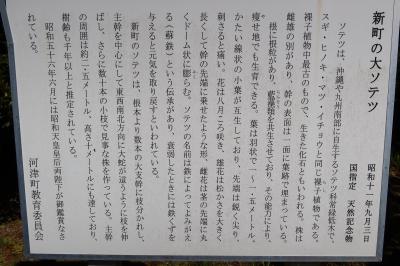 新町の大ソテツ
昭和十一年九月三日
国指定 天然記念物
ソテツは、沖縄や九州南部に自生するソテツ科常緑低木で、
スギ・ヒノキ・マツ・イチョウと同じ裸子植物である。
裸子植物中最古のもので、生きた化石ともいわれる。株は
雌雄の別があり、幹の表面は一面に葉跡で埋まっている。
根に根粒があり、藍藻類を共生させており、その能力により、
痩せ地でも生育できる。葉は羽状で一〜一・五メートル、
かたい線状の小葉が互生しており、先端は鋭く尖り
刺さると痛い。花は八月ころ咲き、雄花は松かさを大きく
長くして幹の先端に乗せたような形、雌花は茎の先端に丸
くドーム状に膨らむ。ソテツの名前は鉄によってよみがえ
る〜蘇鉄〜という伝承があり、衰弱したときには鉄くずを
与えると元気を取り戻すといわれている。
新町のソテツは、根本より数本の大支幹に枝分かれし、
主幹を中心にして東西南北方向に大蛇が這うように枝を伸
ばし、さらに数十本の小枝で見事な株を作っている。主幹
の周囲は約二・五メートル、高さ十メートルにも達しており、
樹齢も千年以上と推定されている。
昭和五十六年六月には昭和天皇皇后両陛下が御鑑賞なさ
れている。
河津町教育委員会